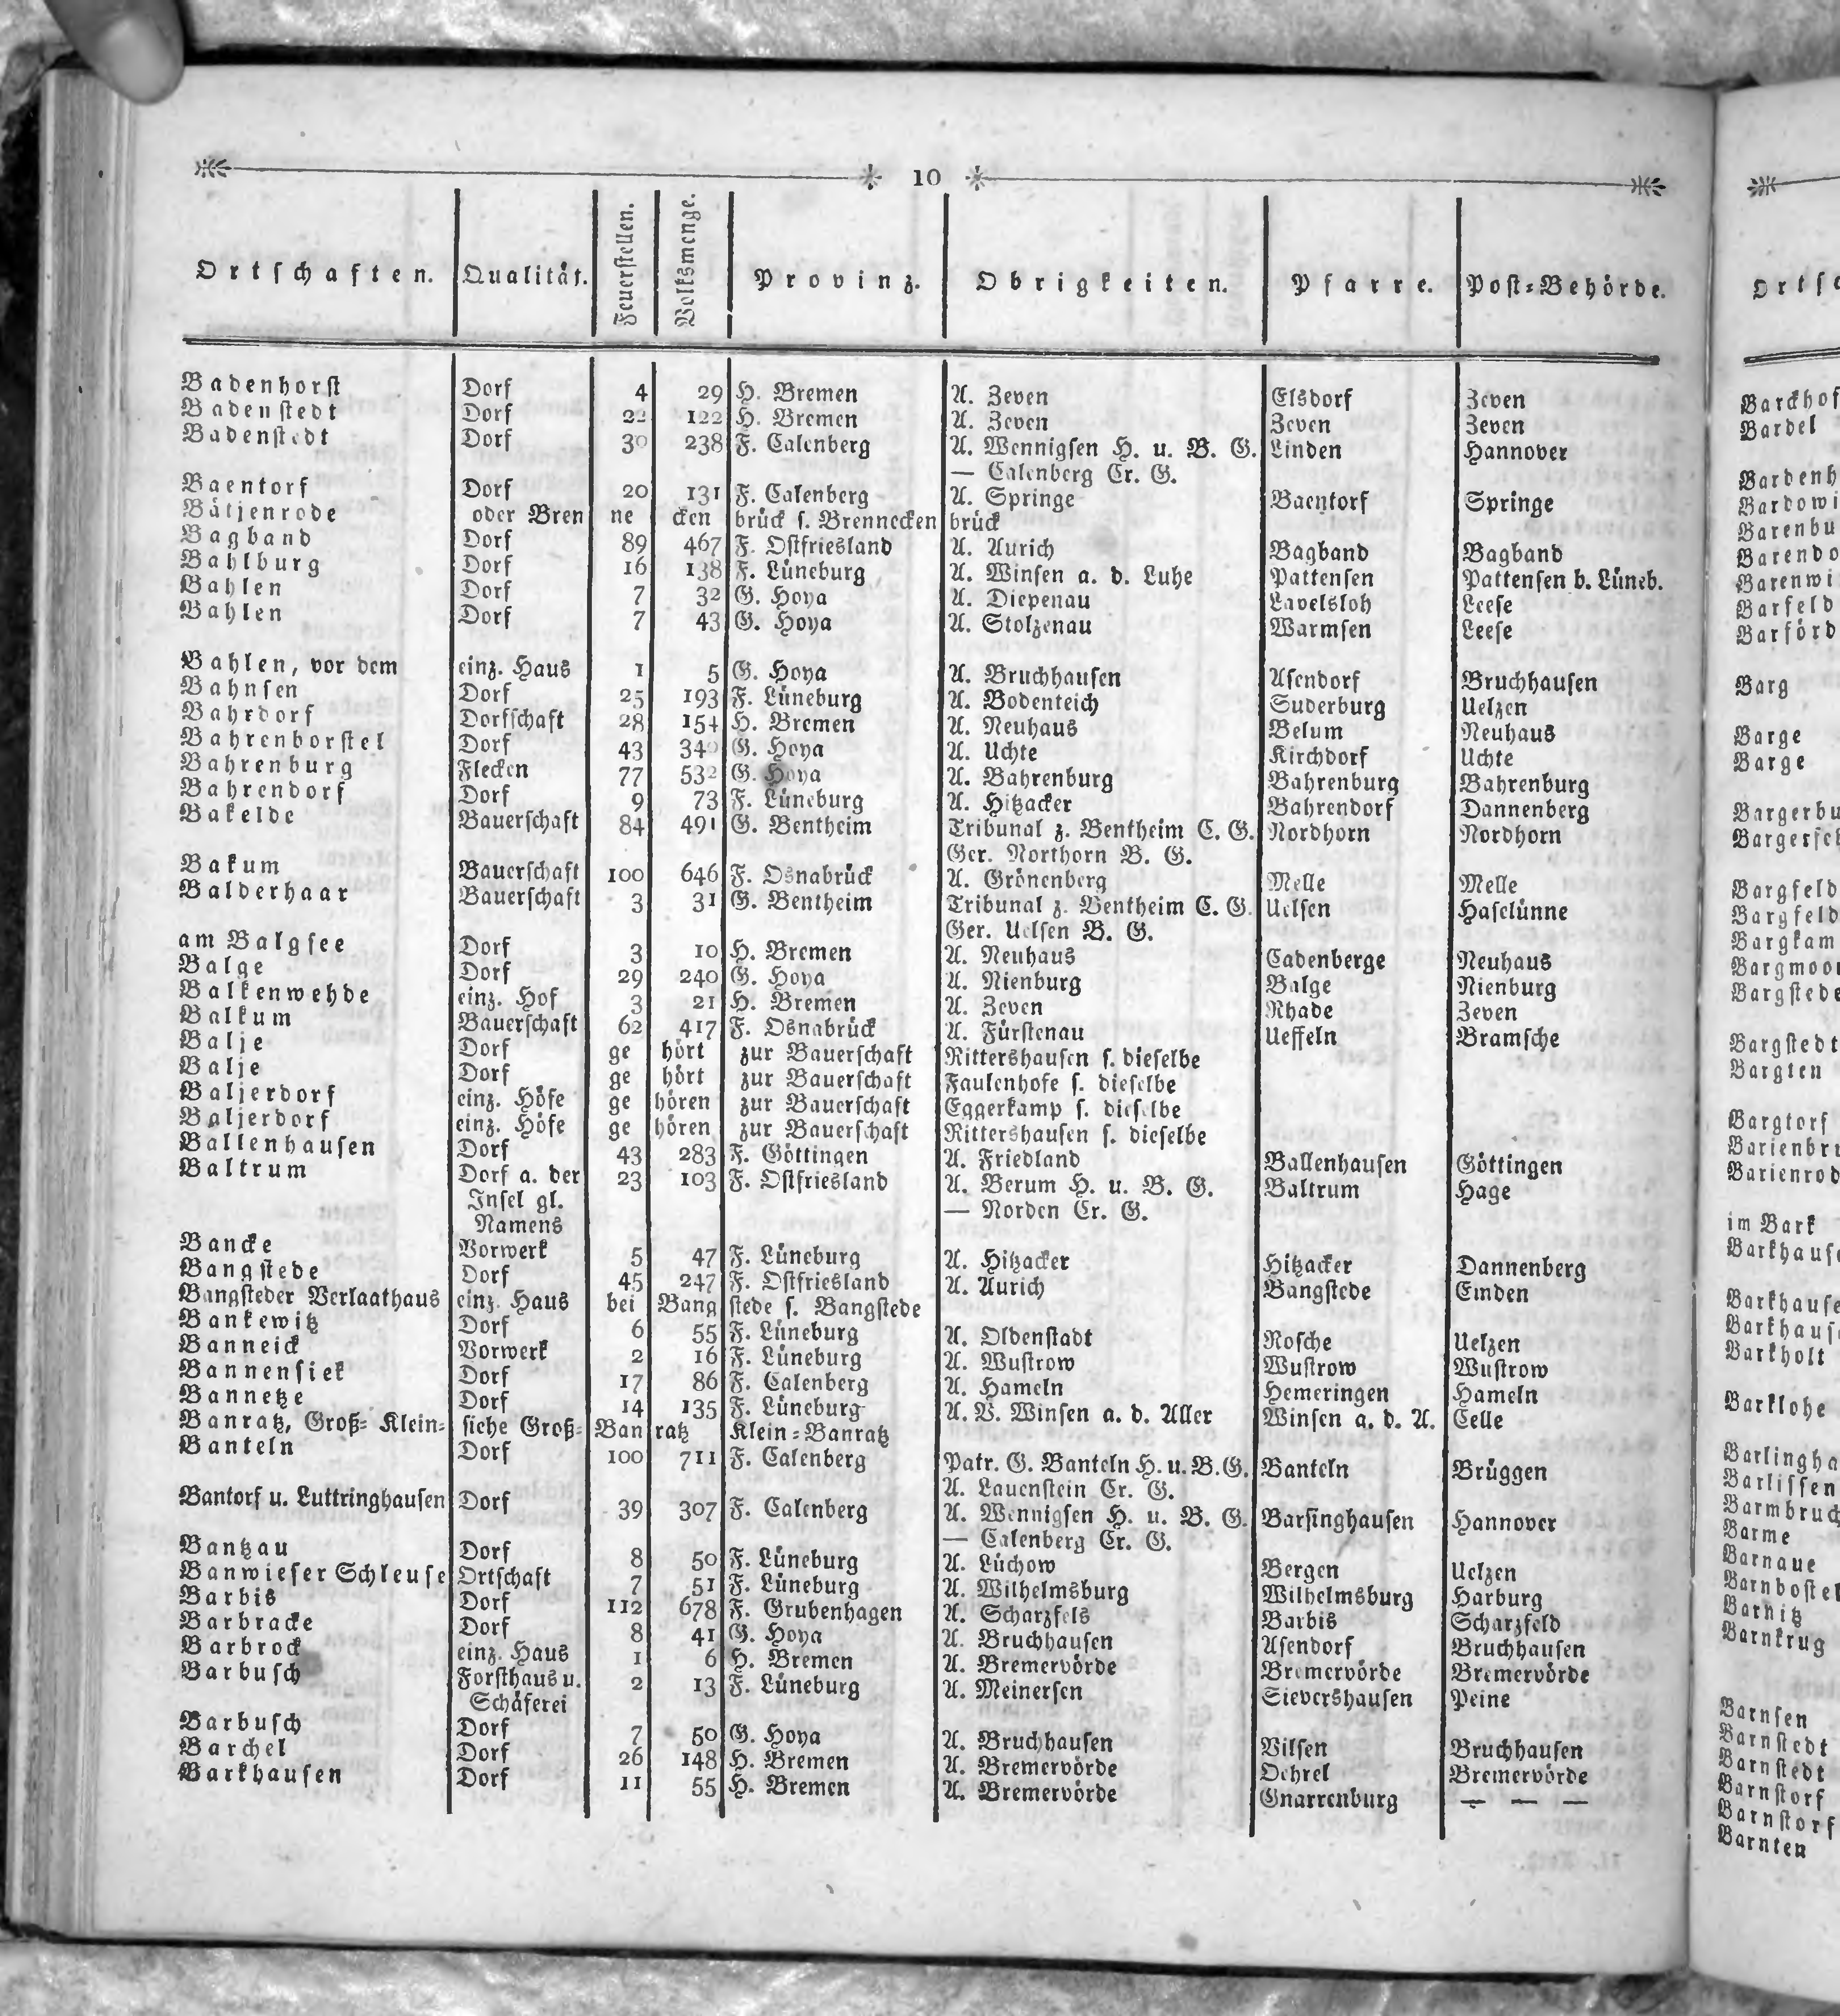 10
Ortschaften. Qualität. Feuerstellen. Volksmenge. Provinz. Obrigkeiten. Pfarre. Post-Behörde.
Badenhorst Dorf 4 29 H. Bremen A. Zeven Elsdorf Zeven
Badenstedt Dorf 22 122 H. Bremen A. Zeven Zeven Zeven
Badenstedt Dorf 30 238 F. Calenberg A. Wennigsen H. u. B. G. Linden Hannover
— Calenberg Cr. G.
Baentorf Dorf 20 131 F. Calenberg A. Springe Baentorf Springe
Bätjenrode oder Bren ne cken brück s. Brennecken brück
Bagband Dorf 89 467 F. Ostfriesland A. Aurich Bagband Bagband
Bahlburg Dorf 16 138 F. Lüneburg A. Winsen a. d. Luhe Pattensen Pattensen b. Lüneb.
Bahlen Dorf 7 32 G. Hoya A. Diepenau Lavelsloh Leese
Bahlen Dorf 7 43 G. Hoya A. Stolzenau Warmsen Leese
Bahlen, vor dem einz. Haus 1 5 G. Hoya A. Bruchhausen Asendorf Bruchhausen
Bahnsen Dorf 25 193 F. Lüneburg A. Bodenteich Suderburg Uelzen
Bahrdorf Dorfschaft 28 154 H. Bremen A. Neuhaus Belum Neuhaus
Bahrenborstel Dorf 43 340 G. Hoya A. Uchte Kirchdorf Uchte
Bahrenburg Flecken 77 532 G. Hoya A. Bahrenburg Bahrenburg Bahrenburg
Bahrendorf Dorf 9 73 F. Lüneburg A. Hitzacker Bahrendorf Dannenberg
Bakelde Bauerschaft 84 491 G. Bentheim Tribunal z. Bentheim C. G. Nordhorn Nordhorn
Ger. Northorn B. G.
Bakum Bauerschaft 100 646 F. Osnabrück A. Grönenberg Melle Melle
Balderhaar Bauerschaft 3 31 G. Bentheim Tribunal z. Bentheim C. G. Uelsen Haselünne
Ger. Uelsen B. G.
am Balgsee Dorf 3 10 H. Bremen A. Neuhaus Cadenberge Neuhaus
Balge Dorf 29 240 G. Hoya A. Nienburg Balge Nienburg
Balkenwehde einz. Hof 3 21 H. Bremen A. Zeven Rhade Zeven
Balkum Bauerschaft 62 417 F. Osnabrück A. Fürstenau Ueffeln Bramsche
Balje Dorf ge hört zur Bauerschaft Rittershausen s. dieselbe
Balje Dorf ge hört zur Bauerschaft Faulenhofe s. dieselbe
Baljerdorf einz. Höfe ge hören zur Bauerschaft Eggerkamp s. dieselbe
Baljerdorf einz. Höfe ge hören zur Bauerschaft Rittershausen s. dieselbe
Ballenhausen Dorf 43 283 F. Göttingen A. Friedland Ballenhausen Göttingen
Baltrum Dorf a. der 23 103 F. Ostfriesland A. Berum H. u. B. G. Baltrum Hage
Insel gl. — Norden Cr. G.
Namens
Bancke Vorwerk 5 47 F. Lüneburg A. Hitzacker Hitzacker Dannenberg
Bangstede Dorf 45 247 F. Ostfriesland A. Aurich Bangstede Emden
Bangsteder Verlaathaus einz. Haus bei Bang stede s. Bangstede
Bankewitz Dorf 6 55 F. Lüneburg A. Oldenstadt Rosche Uelzen
Banneick Vorwerk 2 16 F. Lüneburg A. Wustrow Wustrow Wustrow
Bannensiek Dorf 17 86 F. Calenberg A. Hameln Hemeringen Hameln
Bannetze Dorf 14 135 F. Lüneburg A. V. Winsen a. d. Aller Winsen a. d. A. Celle
Banratz, Groß- Klein- siehe Groß- Ban ratz Klein-Banratz
Banteln Dorf 100 711 F. Calenberg Patr. G. Banteln H. u. B. G. Banteln Brüggen
A. Lauenstein Cr. G.
Bantorf u. Luttringhausen Dorf 39 307 F. Calenberg A. Wennigsen H. u. B. G. Barsinghausen Hannover
— Calenberg Cr. G.
Bantzau Dorf 8 50 F. Lüneburg A. Lüchow Bergen Uelzen
Banwieser Schleuse Ortschaft 7 51 F. Lüneburg A. Wilhelmsburg Wilhelmsburg Harburg
Barbis Dorf 112 678 F. Grubenhagen A. Scharzfels Barbis Scharzfeld
Barbracke Dorf 8 41 G. Hoya A. Bruchhausen Asendorf Bruchhausen
Barbrock einz. Haus 1 6 H. Bremen A. Bremervörde Bremervörde Bremervörde
Barbusch Forsthaus u. 2 13 F. Lüneburg A. Meinersen Sievershausen Peine
Schäferei
Barbusch Dorf 7 50 G. Hoya A. Bruchhausen Vilsen Bruchhausen
Barchel Dorf 26 148 H. Bremen A. Bremervörde Oehrel Bremervörde
Barkhausen Dorf 11 55 H. Bremen A. Bremervörde Gnarrenburg — — —
Ortsc
Barckhof
Bardel
Bardenh
Bardowi
Barenbu
Barendo
Barenwi
Barfeld
Barförd
Barg
Barge
Barge
Bargerbu
Bargersch
Bargfeld
Bargfeld
Bargkam
Bargmoor
Bargstede
Bargstedt
Bargten
Bargtorf
Barienbru
Barienrod
im Bark
Barkhause
Barkhause
Barkhause
Barkholt
Barklohe
Barlingha
Barlissen
Barmbruch
Barme
Barnaue
Barnbostel
Barnitz
Barnkrug
Barnsen
Barnstedt
Barnstedt
Barnstorf
Barnstorf
Barnten